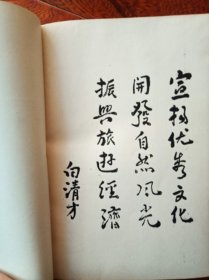 宣扬优秀文化
開發自然风光
振興旅遊經濟
白清才